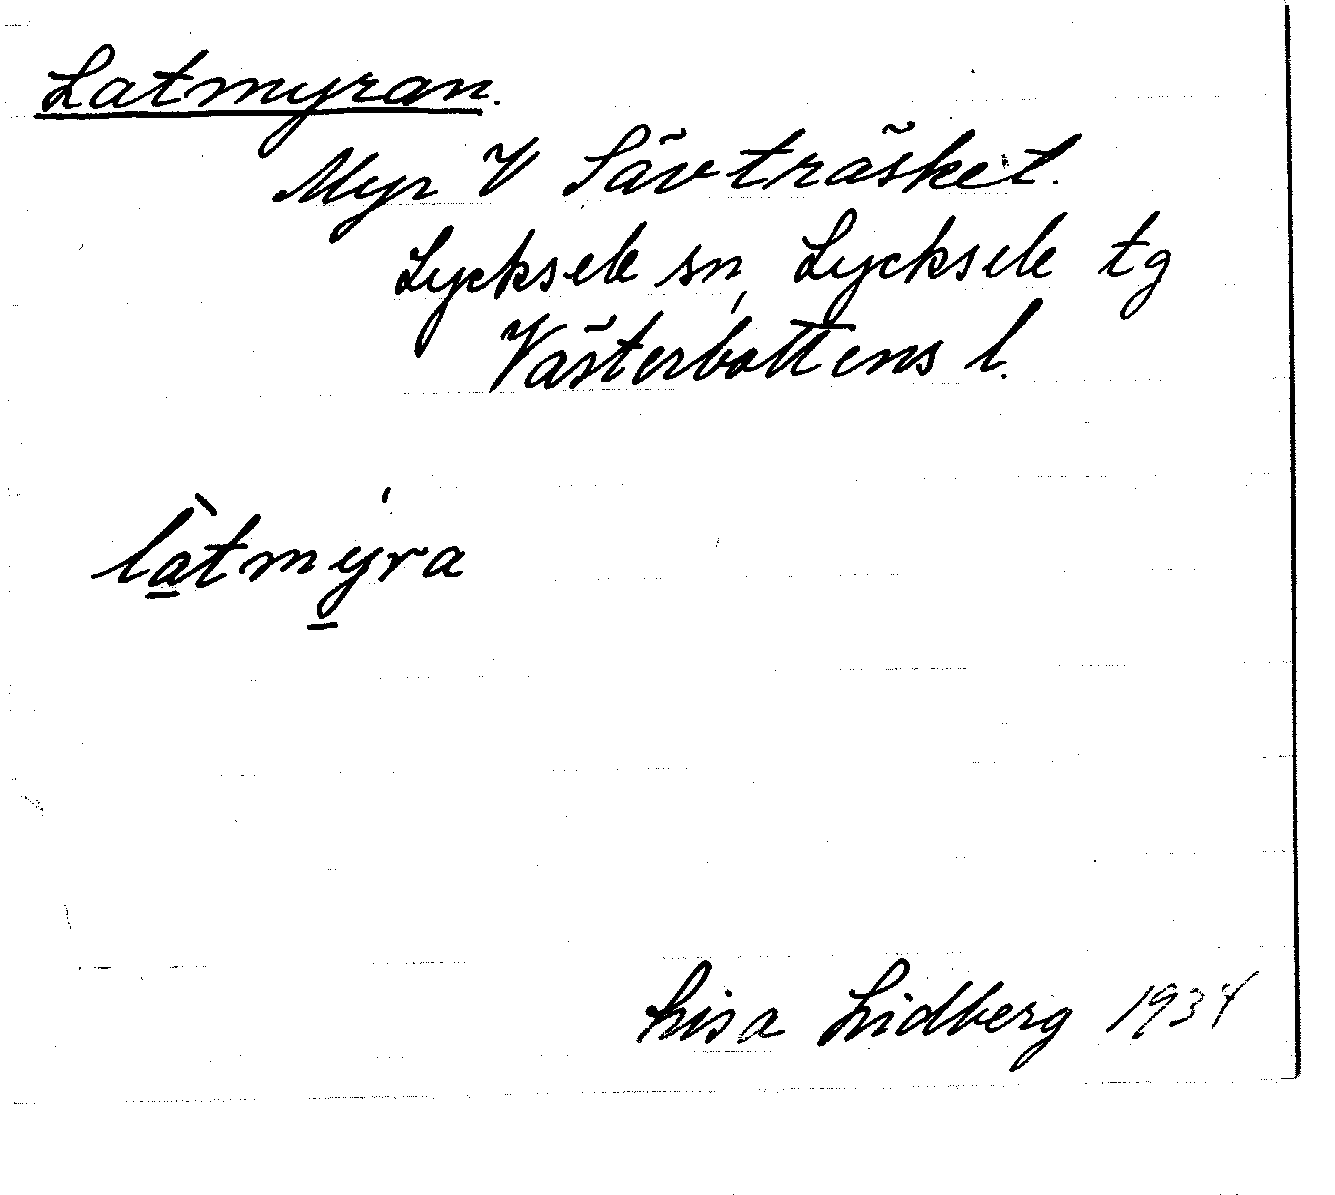 Latmyran.
Myr V Sävträsket.
Lycksele sn, Lycksele tg
Västerbottens l.
là̱tmý̱ra
Lisa Lidberg 1934